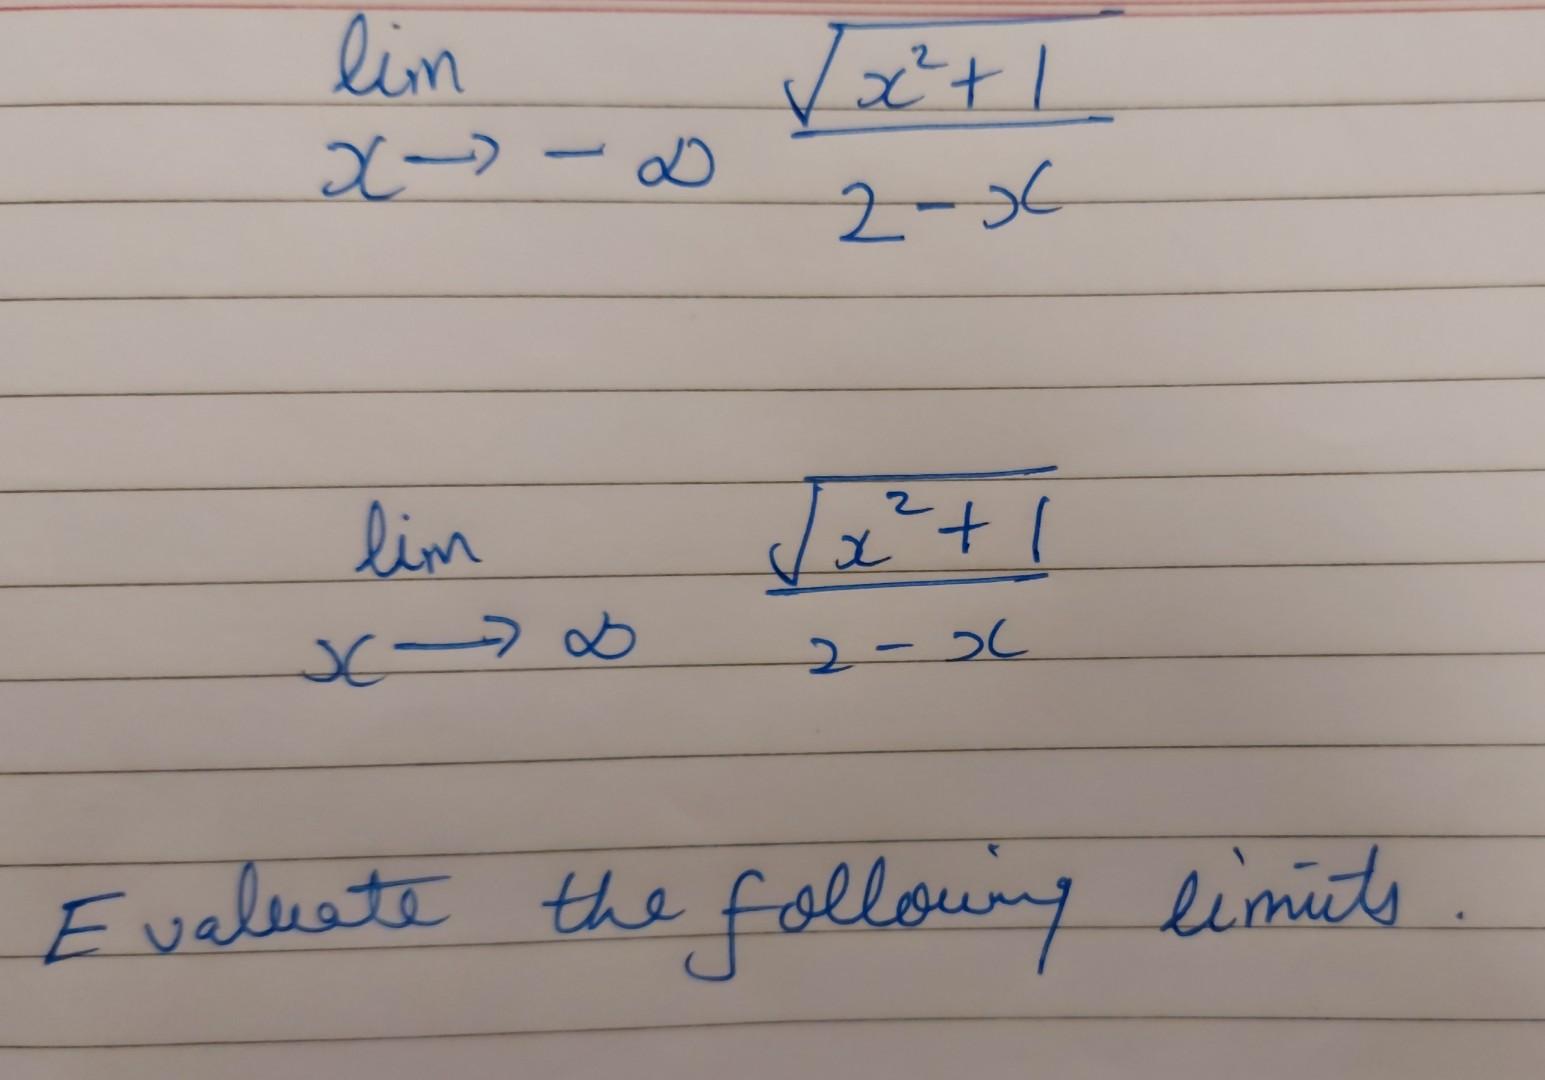 lim √x²+1
x → - ∞ 2 - x
lim √x²+1
x → ∞ 2 - x
Evaluate the following limits.